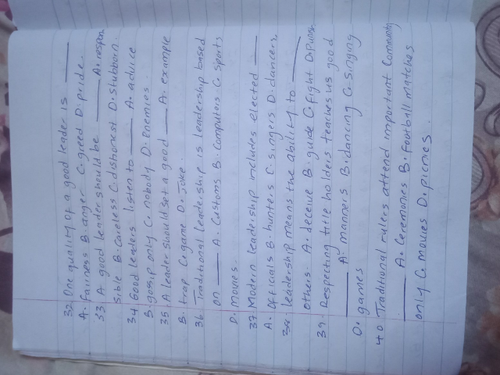 32 One quality of a good leader is ______
A. fairness B. anger C. greed D. pride.
33 A good leader should be ______ A. respon
sible B. Careless C. dishonest D. Stubborn.
34 Good leaders listen to ______ A. advice
B. gossip only C. nobody D. Enemies.
35 A leader should set a good ______ A. example
B. trap C. game D. Joke.
36 Traditional leadership is leadership based
on ______ A. Customs B. Computers C. sports
D. movies.
37 Modern leadership includes elected ______
A. Officials B. hunters C. singers D. dancers.
38 leadership means the ability to ______
others A. deceive B. guide C. fight D. punish
39 Respecting title holders teaches us good
______ A. manners B. dancing C. singing
D. games
40 Traditional rulers attend important Community
______ A. Ceremonies B. Football matches
only C. movies D. picnics.